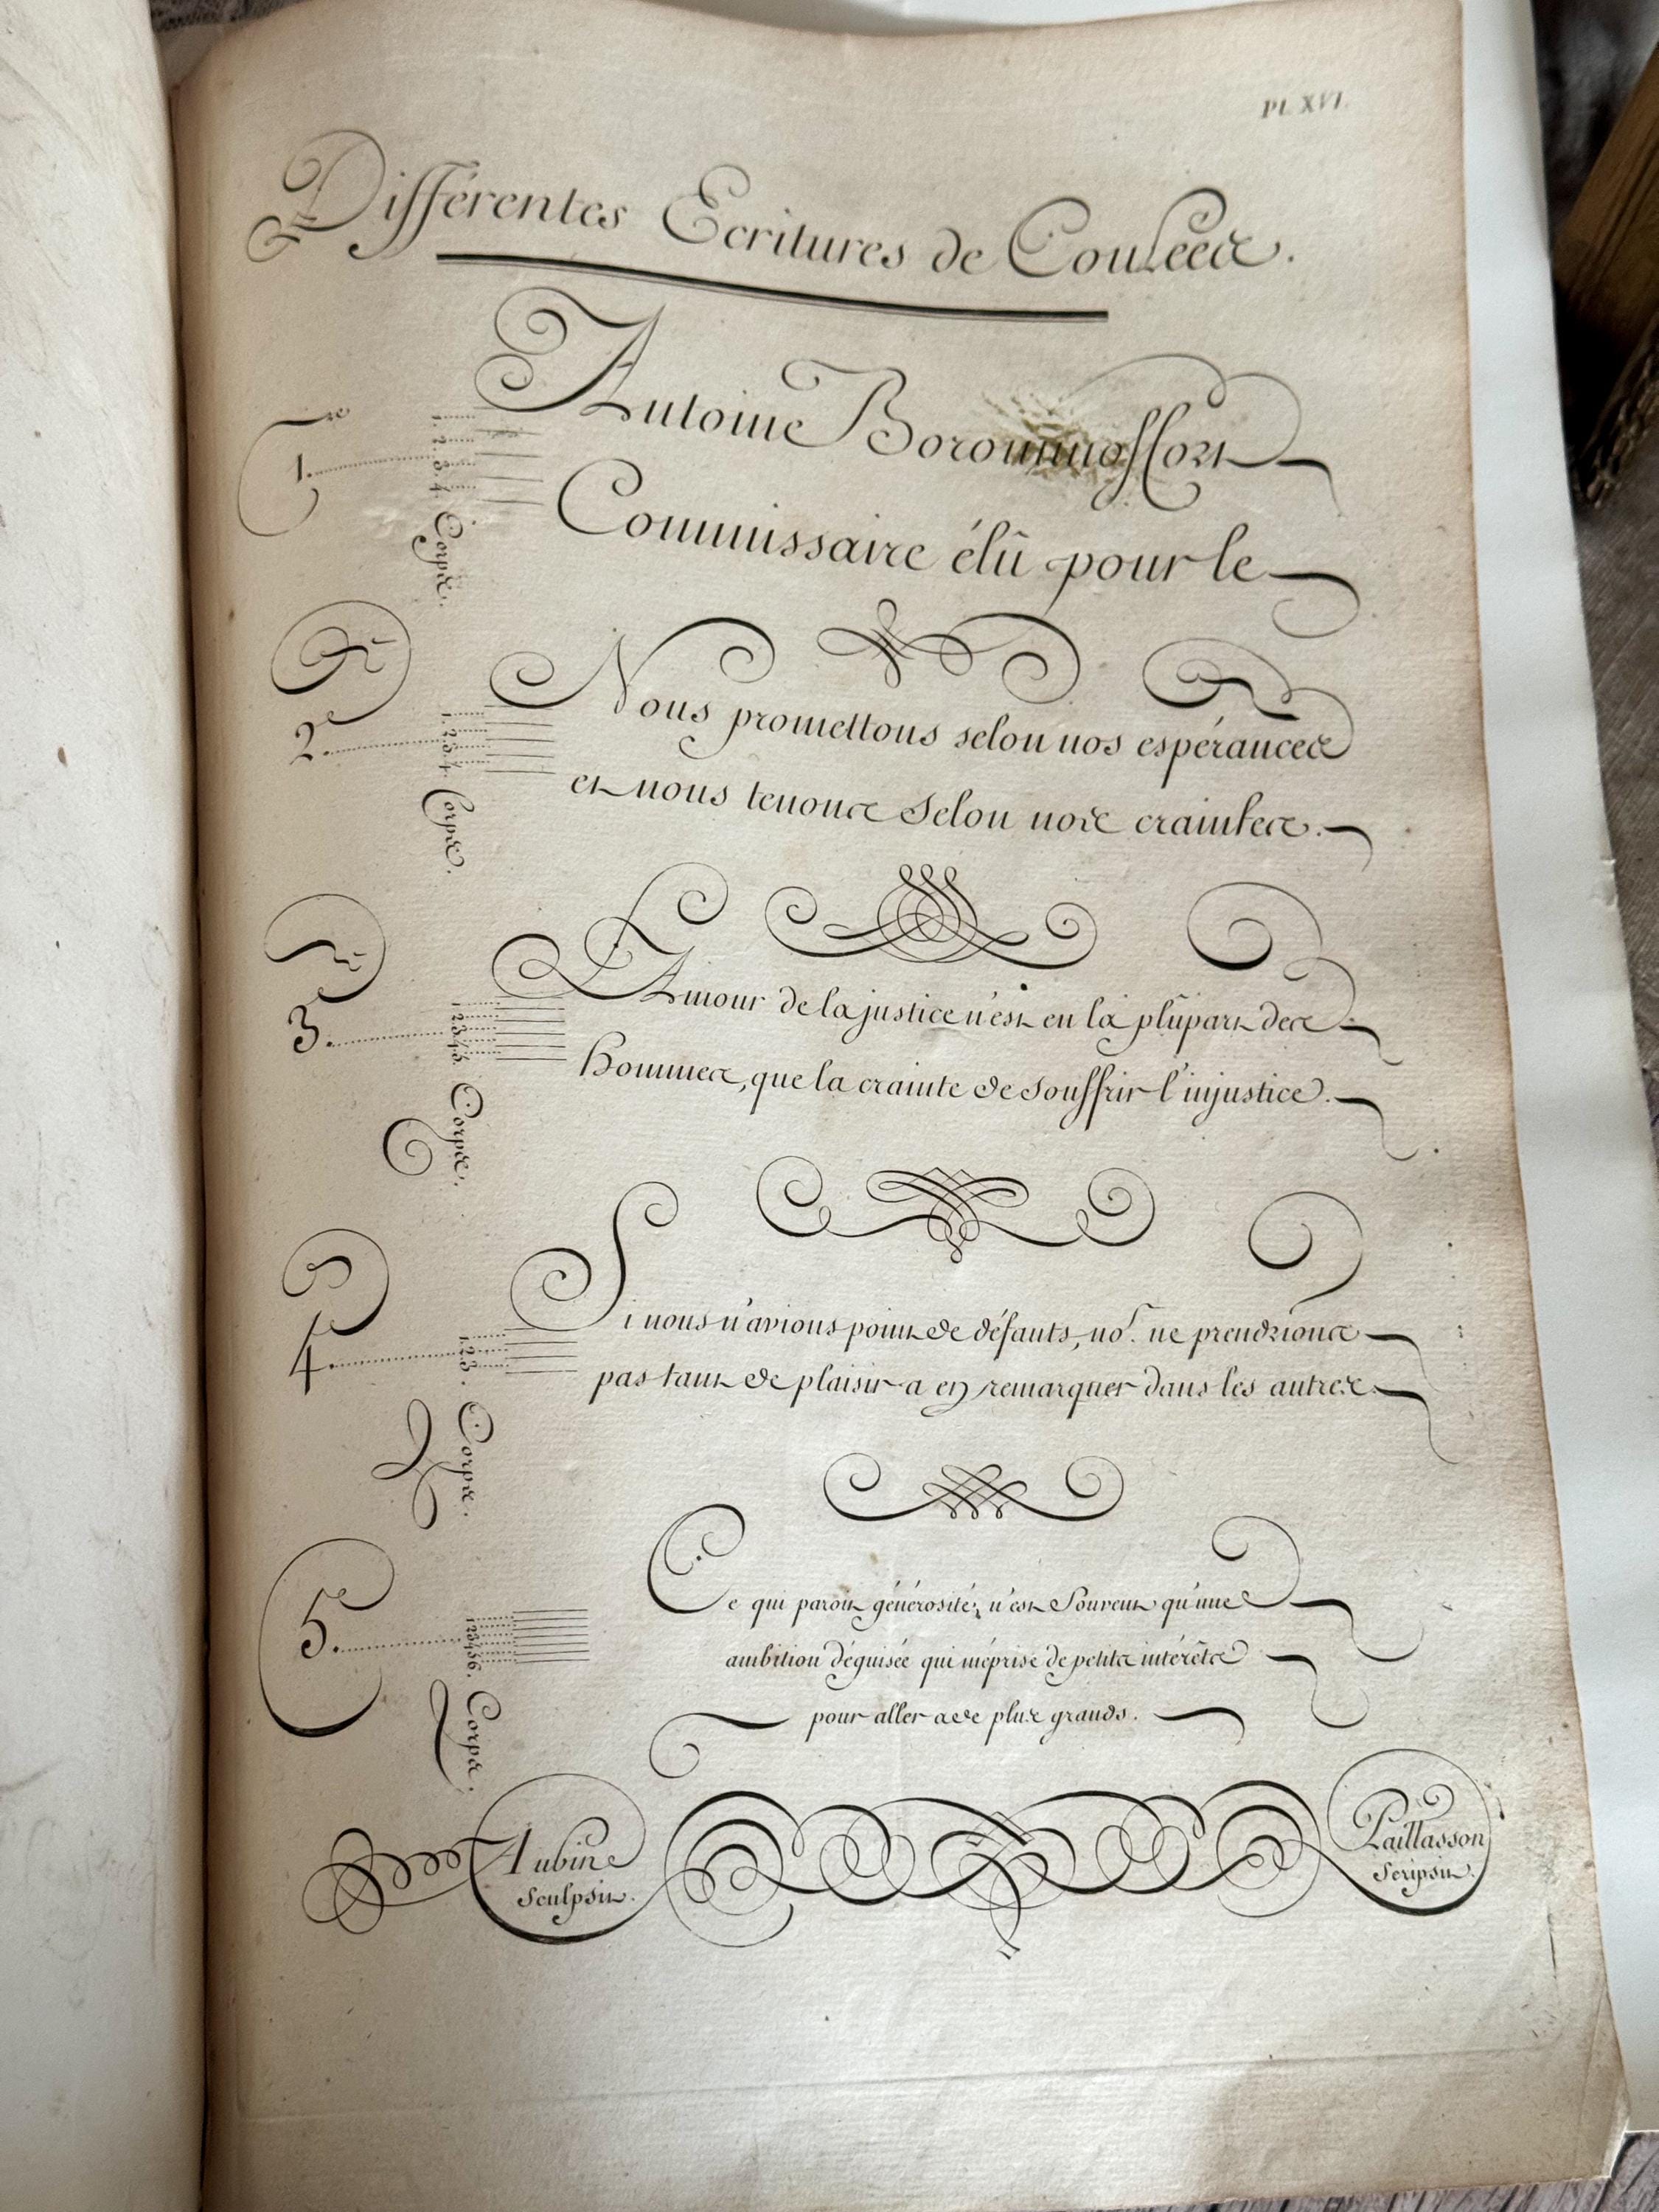 Pl. XVI.
Différentes Ecritures de Coulées.
1.
1. 2. 3. 4. Corps.
Antoine
Commissaire élû pour le
2.
1. 2. 3. 4. Corps.
Nous promettons selon nos espérances
et nous tenons selon nos craintes.
3.
1 2 3 4 5. Corps.
L'Amour de la justice n'est en la plûpart des
Hommes, que la crainte de souffrir l'injustice.
4.
1. 2. 3. Corps.
Si nous n'avions point de défauts, no.s ne prendrions
pas tant de plaisir a en remarquer dans les autres.
5.
1 2 3 4 5 6. Corps.
Ce qui paroit générosité, n'est souvent qu'une
ambition déguisée qui méprise de petits intérêts
pour aller a de plus grands.
Aubin
Sculpsit.
Paillasson
Scripsit.